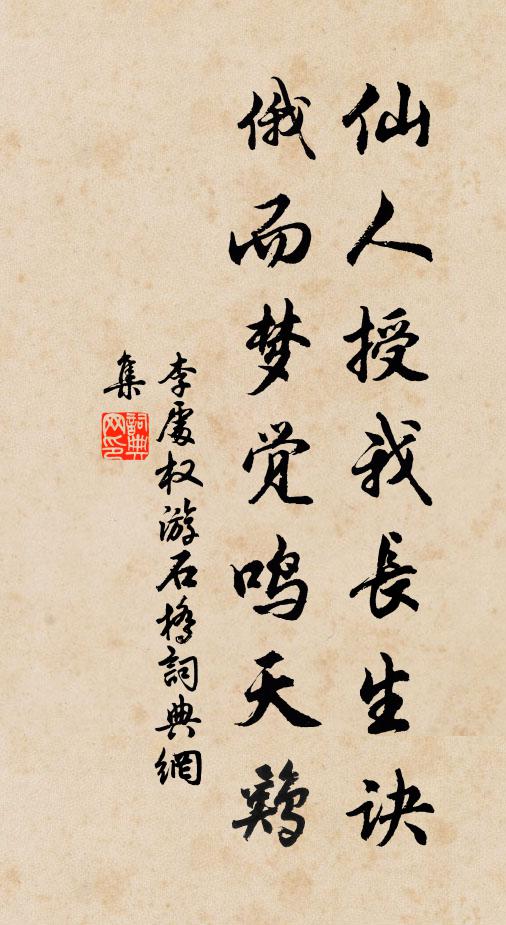 仙人授我長生诀
俄而梦觉鸣天鷄
李處权游石橋詞典網
集
詞典
网印